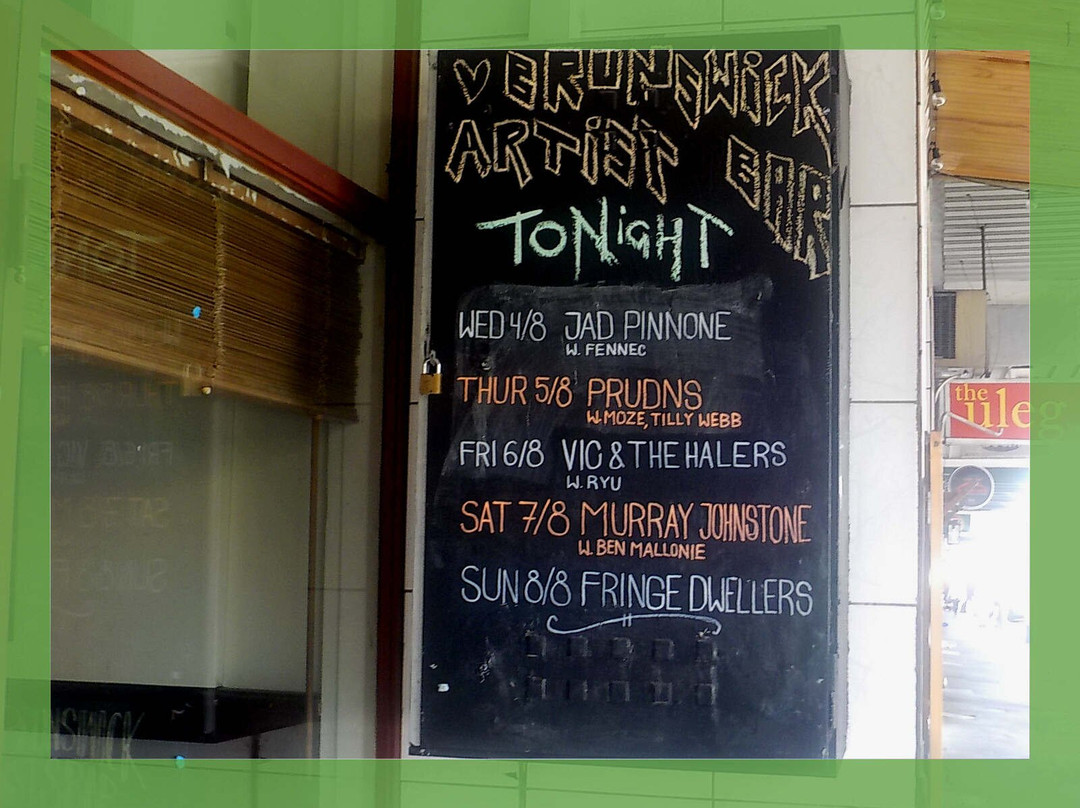 ♡ BRUNSWICK
ARTIST BAR
TONiGHT
WED 4/8 JAD PINNONE
W. FENNEC
THUR 5/8 PRUDNS
W. MOZE, TILLY WEBB
FRI 6/8 VIC & THE HALERS
W. RYU
SAT 7/8 MURRAY JOHNSTONE
W. BEN MALLONIE
SUN 8/8 FRINGE DWELLERS
the
uleg